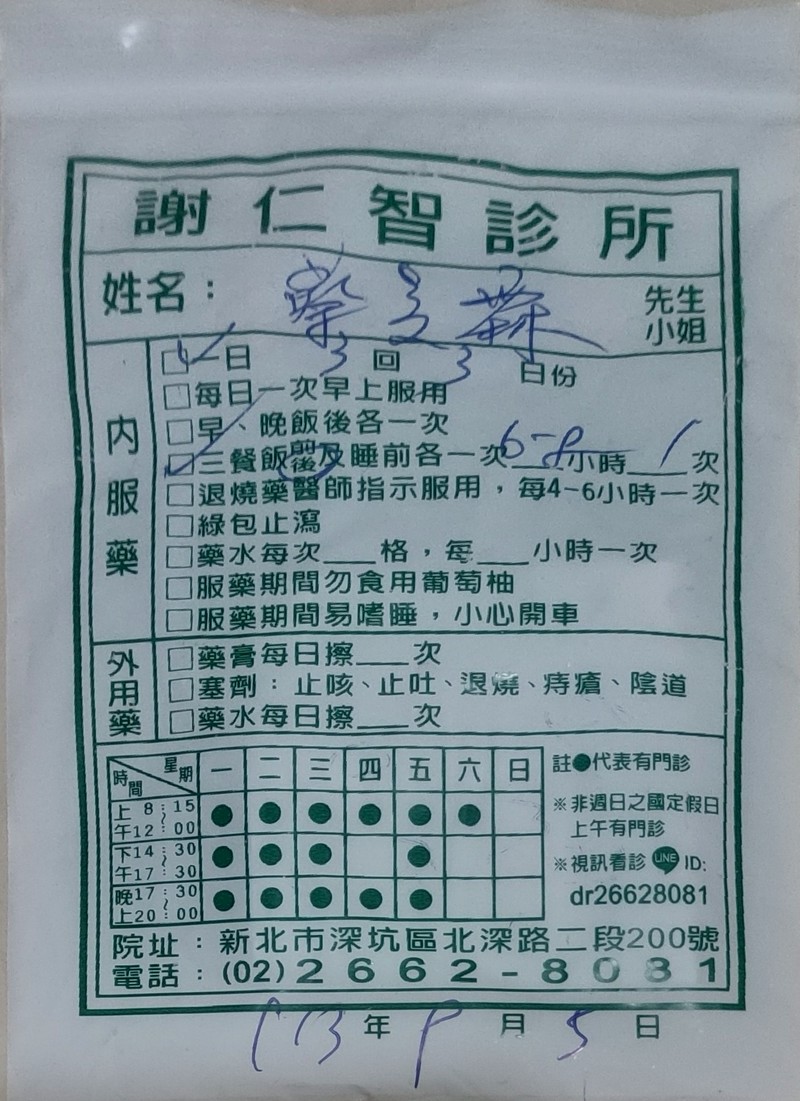 謝仁智診所
姓名：蔡 先生 小姐
內服藥
□✓一日 3 回 3 日份
□每日一次早上服用
□早、晚飯後各一次
□✓三餐飯前後及睡前各一次 6-8 小時 1 次
□退燒藥醫師指示服用，每4-6小時一次
□綠包止瀉
□藥水每次___格，每___小時一次
□服藥期間勿食用葡萄柚
□服藥期間易嗜睡，小心開車
外用藥
□藥膏每日擦___次
□塞劑：止咳、止吐、退燒、痔瘡、陰道
□藥水每日擦___次
時間 星期 一 二 三 四 五 六 日
上午 8:15~12:00 ● ● ● ● ● ●
下午 14:30~17:30 ● ● ● ●
晚上 17:30~20:00 ● ● ● ● ●
註●代表有門診
※非週日之國定假日
上午有門診
※視訊看診 LINE ID:
dr26628081
院址：新北市深坑區北深路二段200號
電話：(02)2662-8081
113 年 9 月 5 日